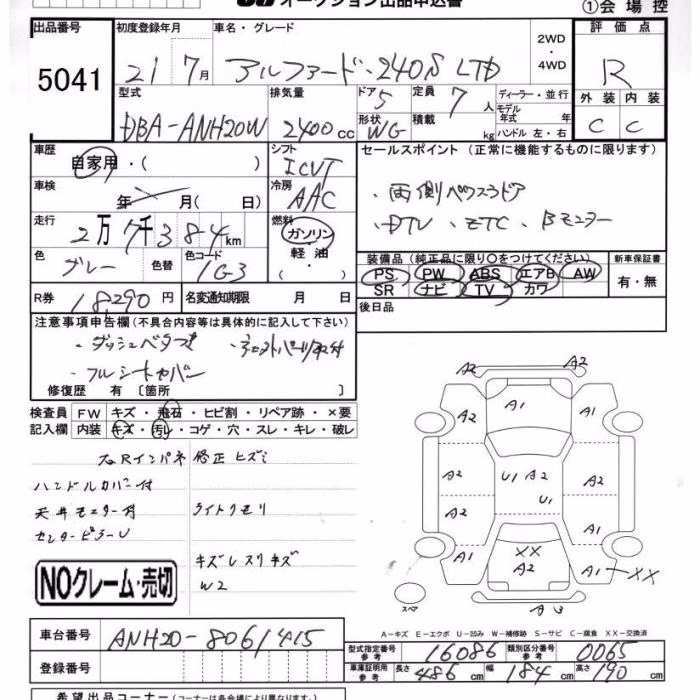 オークション出品申込書
①会場控
出品番号 初度登録年月 車名・グレード 2WD・4WD 評価点
5041 21 7月 アルファード・240S LTD R
型式 排気量 ドア 5 定員 7人 ディーラー・並行 外装 内装
DBA-ANH20W 2400cc 形状 WG 積載 kg モデル年式 年式 ハンドル 左・右 C C
車歴 自家用・( ) シフト ICVT セールスポイント (正常に機能するものに限ります)
車検 年 月( 日) 冷房 AAC ・両側パワスラドア
走行 2万7千384km 燃料 ガソリン・軽油・( ) ・DTV ・ETC ・Bモニター
色 グレー 色替 色コード 1G3 装備品 (純正品に限り○をつけてください) 新車保証書
PS PW ABS エアB AW 有・無
SR ナビ TV カワ
R券 18,290円 名変通知期限 月 日 後日品
注意事項申告欄 (不具合内容等は具体的に記入して下さい)
・フルシートカバー
修復歴 有 [箇所 ]
検査員 FW キズ・飛石・ヒビ割・リペア跡・×要
記入欄 内装 キズ・汚レ・コゲ・穴・スレ・キレ・破レ
右Rインパネ修正ヒズミ
ハンドルカバー付
天井モニター付 ライトクモリ
センターピラーU
キズレスリキズ
W2
NOクレーム・売切
A2 A2
A2 A1 A2
A2 U1 A2 A2
A2 U1 A2
A1 XX A2 A1 A1 XX
スペア
A-キズ E-エクボ U-凹み W-補修跡 S-サビ C-腐食 XX-交換済
車台番号 ANH20-8061415
登録番号
型式指定番号 参考 16086 類別区分番号 参考 0065
車庫証明用 参考 長さ 486cm 幅 184cm 高さ 190cm
希望出品コーナー (コーナーは各会場により異なります)